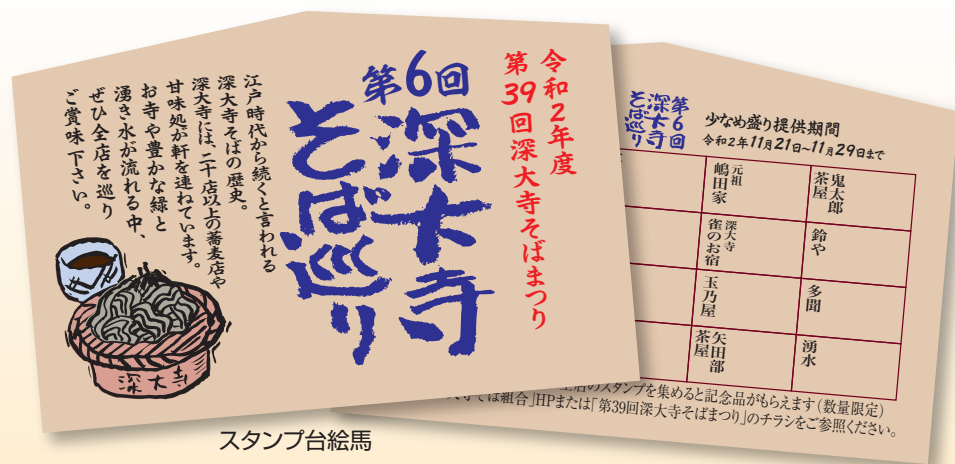 令和2年度
第39回深大寺そばまつり
第6回
深大寺
そば巡り
江戸時代から続くと言われる
深大寺そばの歴史。
深大寺には、二十店以上の蕎麦店や
甘味処が軒を連ねています。
お寺や豊かな緑と
湧き水が流れる中、
ぜひ全店を巡り
ご賞味下さい。
深大寺
第6回
深大寺
そば巡り
少なめ盛り提供期間
令和2年11月21日~11月29日まで
鬼太郎
茶屋
鈴や
多聞
湧水
元祖
嶋田家
深大寺
雀のお宿
玉乃屋
矢田部
茶屋
店のスタンプを集めると記念品がもらえます(数量限定)
そば組合」HPまたは「第39回深大寺そばまつり」のチラシをご参照ください。
スタンプ台絵馬